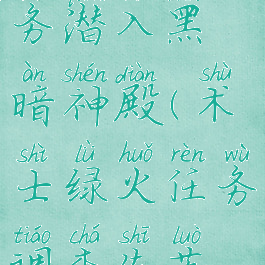 务潜入黑
àn shén diàn shù
暗神殿(术
shì lǜ huǒ rèn wù
士绿火任务
tiáo chá shī luò
调查失落